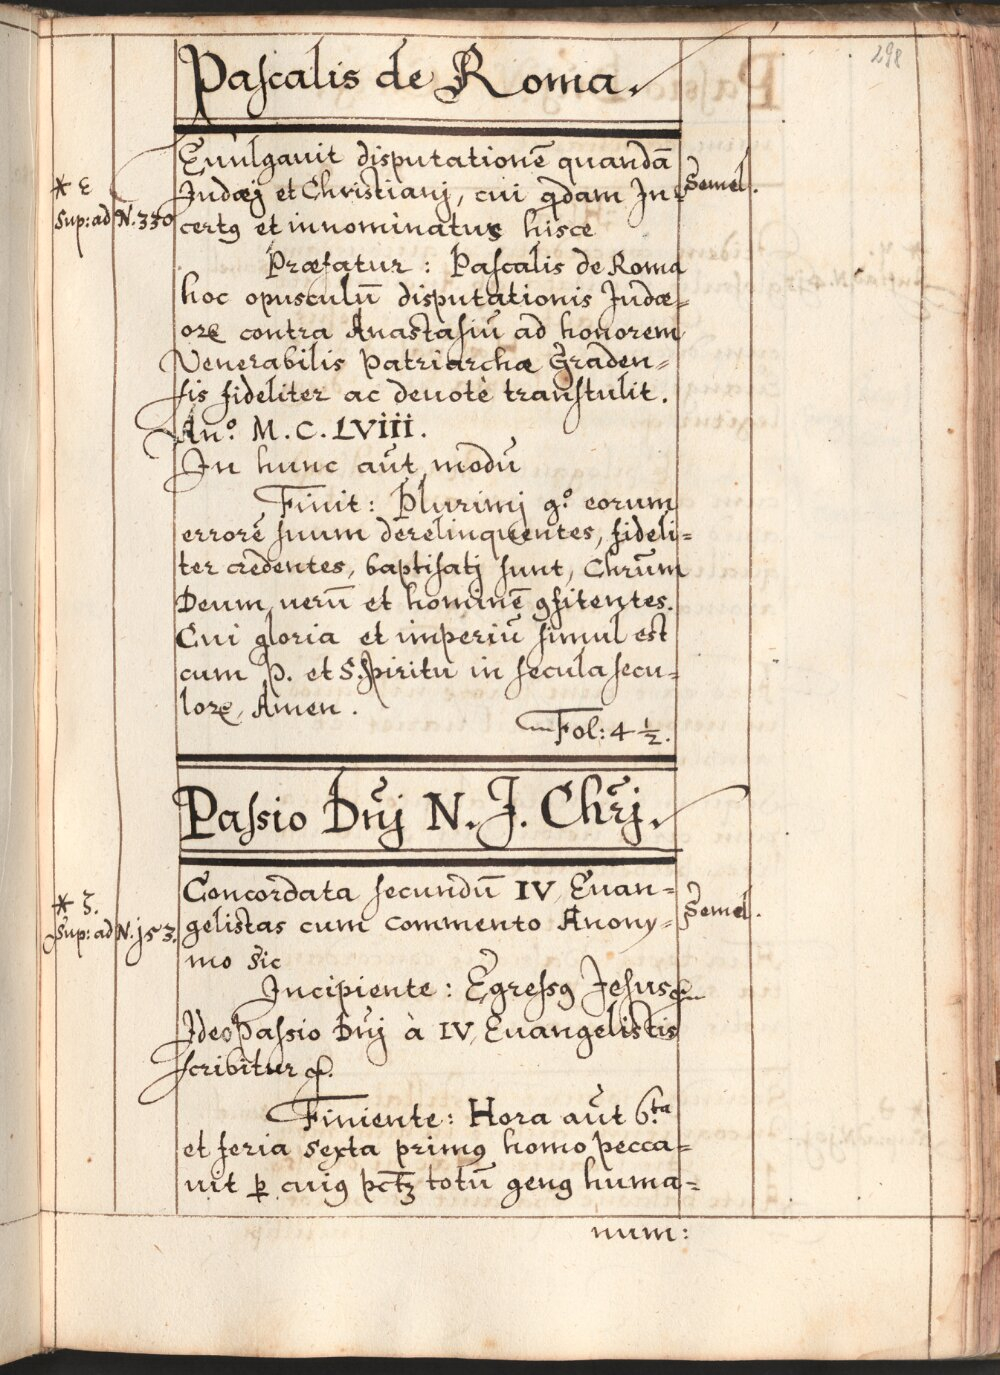 298
Pascalis de Roma.
Euulgauit disputationē quandā
* ε Judæj et Christianj, cui qdam In- Semel.
Sup: ad N. 330 certꝰ et innominatus hisce
Præfatur: Pascalis de Roma
hoc opusculū disputationis Judæ-
orꝝ contra Anastasiū ad honorem
Venerabilis Patriarchæ Graden-
sis fideliter ac deuotè transtulit.
Anº. M. C. LVIII.
In hunc aūt modū
Finit: Plurimj gº. eorum
errorē suum derelinquentes, fideli-
ter credentes, baptisatj sunt, Chrūm
Deum uerū et hominē ꝯfitentes.
Cui gloria et imperiū simul est
cum P. et S. Spiritu in secula secu-
lorꝝ, Amen.
Fol: 4 ½.
Passio Dnj N. J. Chrj.
Concordata secundū IV Euan-
* ζ. gelistas cum commento Anony- Semel.
Sup: ad N. 153. mo sic
Incipiente: Egressꝰ Jesus
Ideo Passio Dnj à IV Euangelistis
scribitur
Finiente: Hora aūt 6.ta
et feria sexta primꝰ homo pecca-
uit ꝑ cuiꝰ pctꝫ totū genꝰ huma-
num: